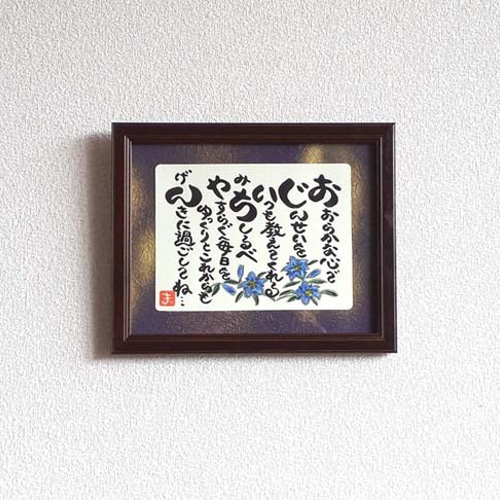 おおらかな心で
じんせいを
いつも教えてくれる
みちしるべ
やすらぐ毎日を
ゆっくりとこれからも
げんきに過ごしてね…
ま